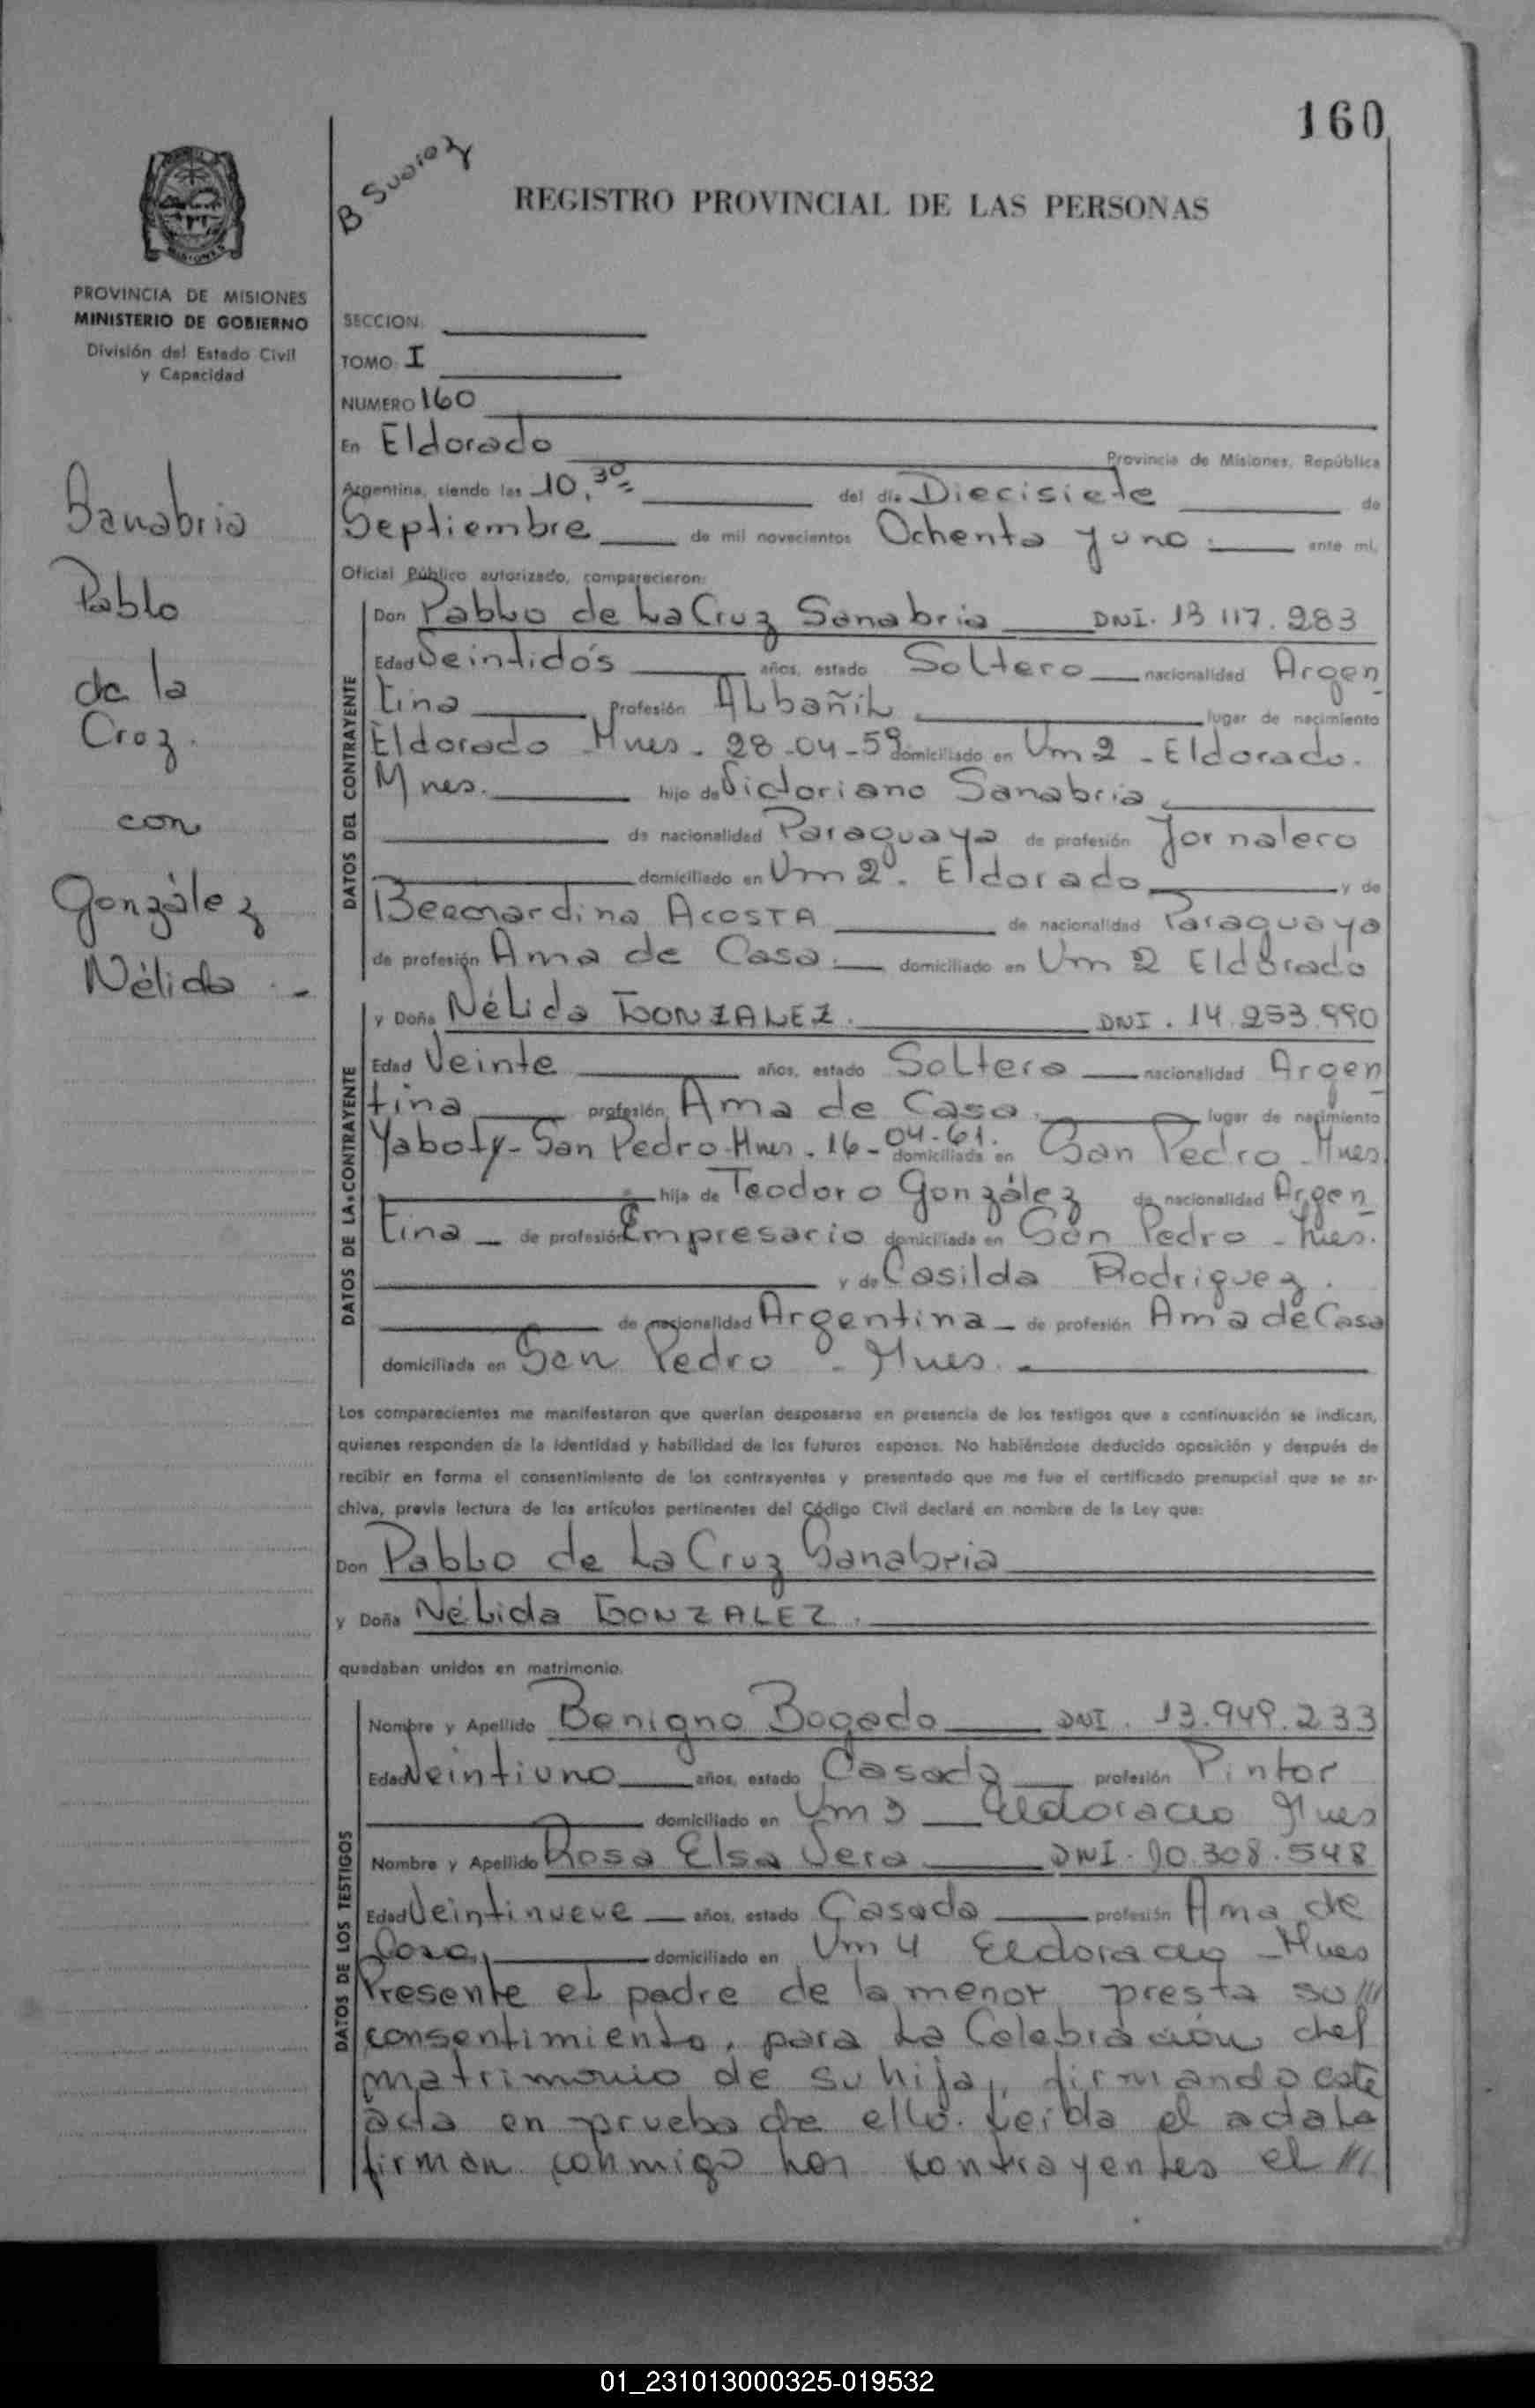 160
B Suarez
REGISTRO PROVINCIAL DE LAS PERSONAS
PROVINCIA DE MISIONES
MINISTERIO DE GOBIERNO
División del Estado Civil
y Capacidad
Sanabria
Pablo
de la
Cruz.
con
González
Nélida.-
SECCION:
TOMO: I
NUMERO 160
En Eldorado Provincia de Misiones, República
Argentina, siendo las 10,30= del día Diecisiete de
Septiembre de mil novecientos Ochenta y uno. ante mí,
Oficial Público autorizado, comparecieron:
DATOS DEL CONTRAYENTE
Don Pablo de La Cruz Sanabria DNI. 13 117.283
Edad Veintidós años, estado Soltero nacionalidad Argen
tina Profesión Albañil lugar de nacimiento
Eldorado Mnes. 28-04-59 domiciliado en Km 2 - Eldorado.
Mnes. hijo de Victoriano Sanabria
de nacionalidad Paraguaya de profesión Jornalero
domiciliado en Km 2. Eldorado y de
Bernardina ACOSTA de nacionalidad Paraguaya
de profesión Ama de Casa. domiciliado en Km 2 Eldorado
DATOS DE LA CONTRAYENTE
y Doña Nélida GONZALEZ. DNI. 14.253.990
Edad Veinte años, estado Soltera nacionalidad Argen
tina profesión Ama de Casa. lugar de nacimiento
Yaboty-San Pedro-Mnes. 16-04-61. domiciliada en San Pedro-Mnes
hija de Teodoro González de nacionalidad Argen
tina de profesión Empresario domiciliada en San Pedro-Mnes.
y de Casilda Rodriguez.
de nacionalidad Argentina de profesión Ama de Casa
domiciliada en San Pedro - Mnes.
Los comparecientes me manifestaron que querían desposarse en presencia de los testigos que a continuación se indican,
quienes responden de la identidad y habilidad de los futuros esposos. No habiéndose deducido oposición y después de
recibir en forma el consentimiento de los contrayentes y presentado que me fue el certificado prenupcial que se ar-
chiva, previa lectura de los artículos pertinentes del Código Civil declaré en nombre de la Ley que:
Don Pablo de La Cruz Sanabria
y Doña Nélida GONZALEZ.
quedaban unidos en matrimonio.
DATOS DE LOS TESTIGOS
Nombre y Apellido Benigno Bogado DNI. 13.949.233
Edad Veintiuno años, estado Casado profesión Pintor
domiciliado en Km 3 Eldorado Mnes
Nombre y Apellido Rosa Elsa Vera DNI. 10.308.548
Edad Veintinueve años, estado Casada profesión Ama de
Casa, domiciliado en Km 4 Eldorado - Mnes
Presente el padre de la menor, presta su ///
consentimiento, para la Celebración del
matrimonio de su hija, firmando este
acta en prueba de ello. Leída el acta la
firman conmigo los contrayentes el ///
01_231013000325-019532